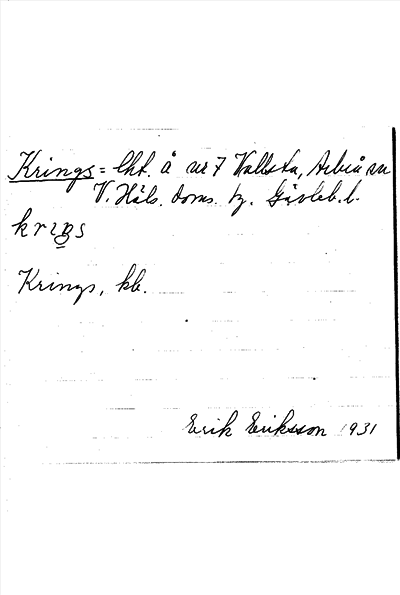 Krings = lht. å nr 7 Vallsta, Arbrå sn
V. Häls. doms. tg. Gävleb. l.
krings
Krings, kb.
Erik Eriksson 1931